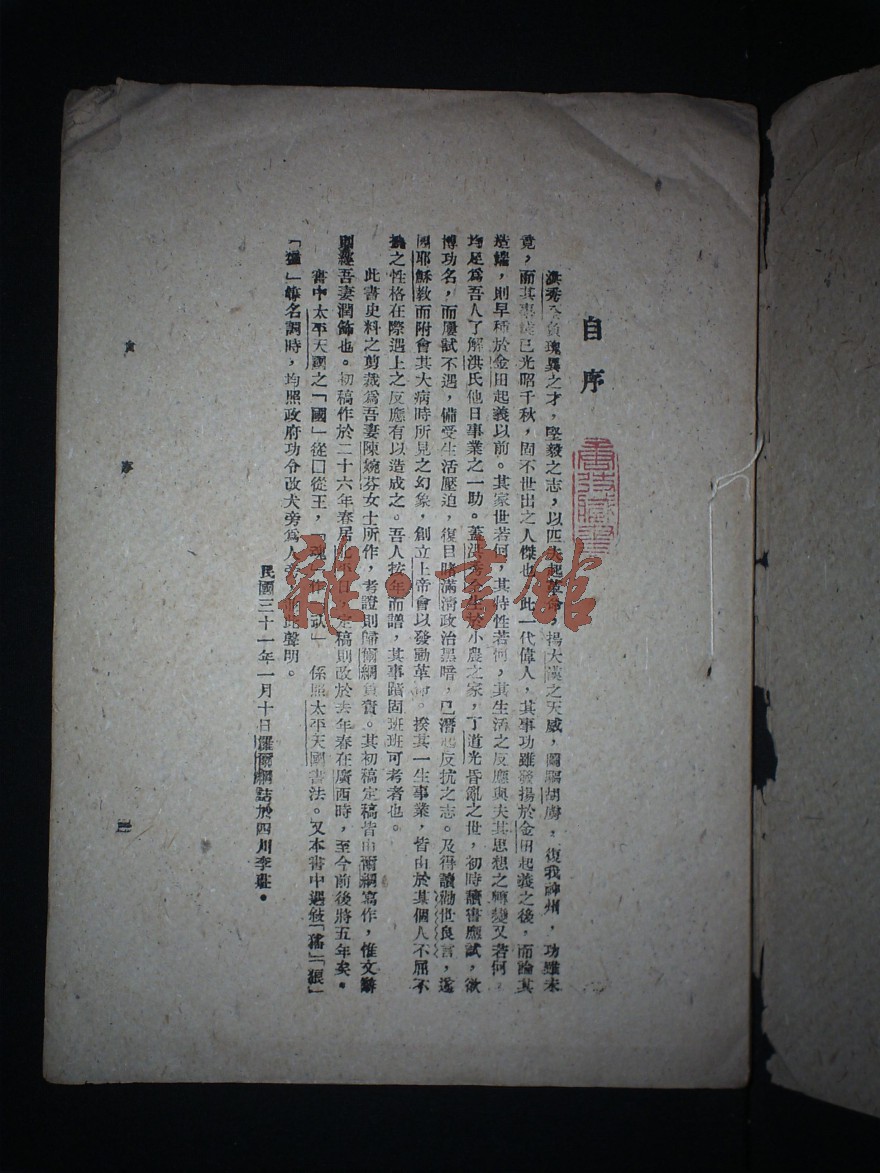 自序
洪秀全負瑰異之才，堅毅之志，以匹夫起革命，揚大漢之天威，關騶胡虜，復我神州，功雖未
竟，而其事業已光昭千秋，固不世出之人傑也。此一代偉人，其事功雖發揚於金田起義之後，而論其
造端，則早種於金田起義以前。其家世若何，其特性若何，其生活之反應與夫其思想之轉變又若何，
均足爲吾人了解洪氏他日事業之一助。蓋洪秀全生於小農之家，丁道光昏亂之世，初時讀書應試，欲
博功名，而屢試不遇，備受生活壓迫，復目睹滿清政治黑暗，已潛起反抗之志。及得讀勸世良言，遂
因耶穌教而附會其大病時所見之幻象，創立上帝會以發動革命。揆其一生事業，皆由於其個人不屈不
撓之性格在際遇上之反應有以造成之。吾人按年而譜，其事蹟固班班可考者也。
此書史料之剪裁爲吾妻陳婉芬女士所作，考證則歸爾綱負責。其初稿定稿皆由爾綱寫作，惟文辭
則經吾妻潤飾也。初稿作於二十六年春居北平日，定稿則改於去年春在廣西時，至今前後將五年矣。
書中太平天國之「國」從囗從王，魂作「䰟」係照太平天國書法。又本書中遇徭「猺」「狼」
「獞」等名詞時，均照政府功令改犬旁爲人旁，附此聲明。
民國三十一年一月十日羅爾綱誌於四川李莊。
自序
三
雜·書館